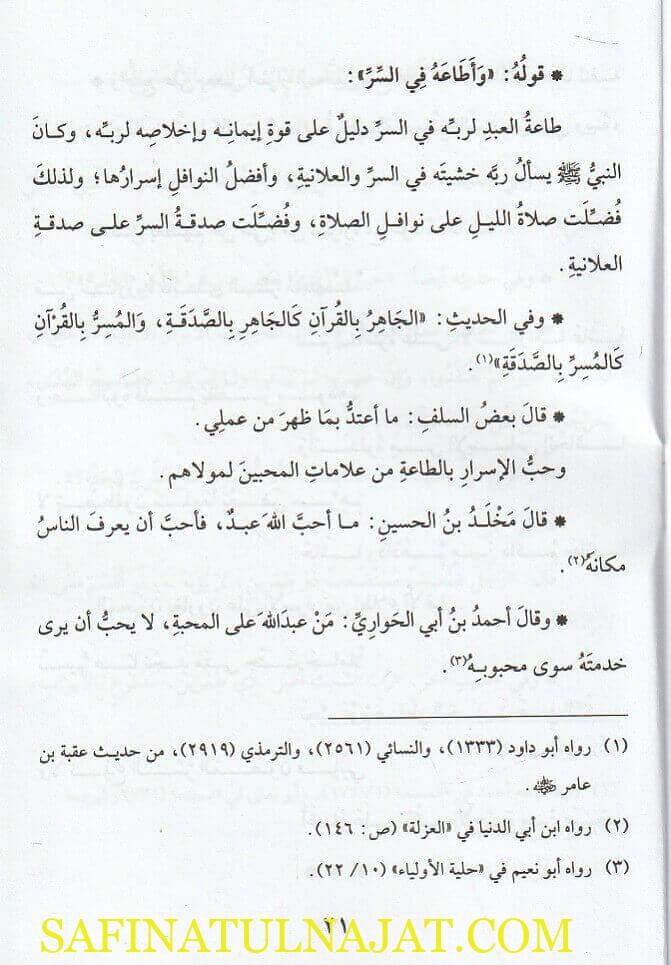 * قولُهُ: «وَأَطَاعَهُ فِي السِّرِّ»:
طاعةُ العبدِ لربِّه في السرِّ دليلٌ على قوةِ إيمانِه وإخلاصِه لربِّه، وكانَ
النبيُّ ﷺ يسألُ ربَّه خشيتَه في السرِّ والعلانيةِ، وأفضلُ النوافلِ إسرارُها؛ ولذلكَ
فُضِّلَت صلاةُ الليلِ على نوافلِ الصلاةِ، وفُضِّلَت صدقةُ السرِّ على صدقةِ
العلانيةِ.
* وفي الحديثِ: «الجَاهِرُ بِالقُرآنِ كَالجَاهِرِ بِالصَّدَقَةِ، وَالمُسِرُّ بِالقُرْآنِ
كَالمُسِرِّ بِالصَّدَقَةِ»(١).
* قالَ بعضُ السلفِ: ما أعتدُّ بمَا ظهرَ من عملِي.
وحبُّ الإسرارِ بالطاعةِ من علاماتِ المحبينَ لمولاهم.
* قالَ مَخْلَدُ بنُ الحسينِ: ما أحبَّ اللهَ عبدٌ، فأحبَّ أن يعرفَ الناسُ
مكانهُ(٢).
* وقالَ أحمدُ بنُ أبي الحَوارِيِّ: مَنْ عبدَاللهَ على المحبةِ، لا يحبُّ أن يرى
خدمتَهُ سوى محبوبِهُ(٣).
(١) رواه أبو داود (١٣٣٣)، والنسائي (٢٥٦١)، والترمذي (٢٩١٩)، من حديث عقبة بن
عامر رضي الله عنه.
(٢) رواه ابن أبي الدنيا في «العزلة» (ص: ١٤٦).
(٣) رواه أبو نعيم في «حلية الأولياء» (١٠/ ٢٢).
٢١
SAFINATULNAJAT.COM